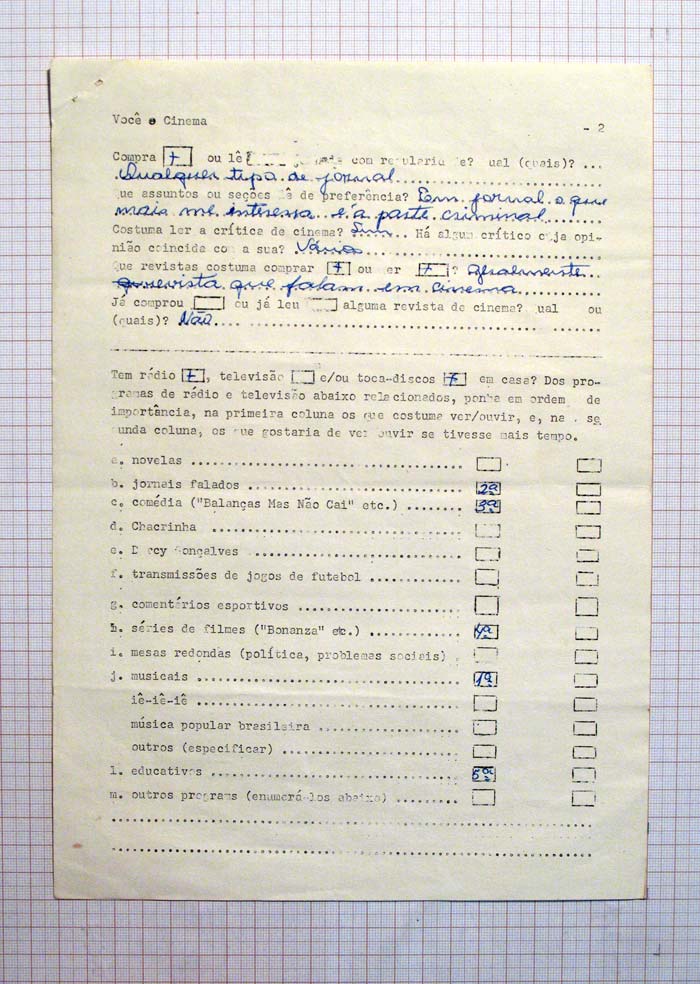 Você e Cinema
- 2
Compra [+] ou lê com regularidade? qual (quais)? ...
Qualquer tipo de jornal
que assuntos ou seções lê de preferência? Em jornal o que
mais me interessa e a parte criminal
Costuma ler a crítica de cinema? Sim... Há algum crítico cuja opi-
nião coincida com a sua? Vários
Que revistas costuma comprar [+] ou ler [+]? Geralmente
revista que falam em cinema
Já comprou [ ] ou já leu [ ] alguma revista de cinema? qual ou
(quais)? Não
Tem rádio [+], televisão [ ] e/ou toca-discos [+] em casa? Dos pro-
gramas de rádio e televisão abaixo relacionados, ponha em ordem de
importância, na primeira coluna os que costuma ver/ouvir, e, na se
gunda coluna, os que gostaria de ver ouvir se tivesse mais tempo.
a. novelas
b. jornais falados 2ª
c. comédia ("Balanças Mas Não Cai" etc.) 3ª
d. Chacrinha
e. Dercy Gonçalves
f. transmissões de jogos de futebol
g. comentários esportivos
h. séries de filmes ("Bonanza" etc.) 4ª
i. mesas redondas (política, problemas sociais)
j. musicais 1ª
iê-iê-iê
música popular brasileira
outros (especificar)
l. educativos 5ª
m. outros programs (enumerá-los abaixo)